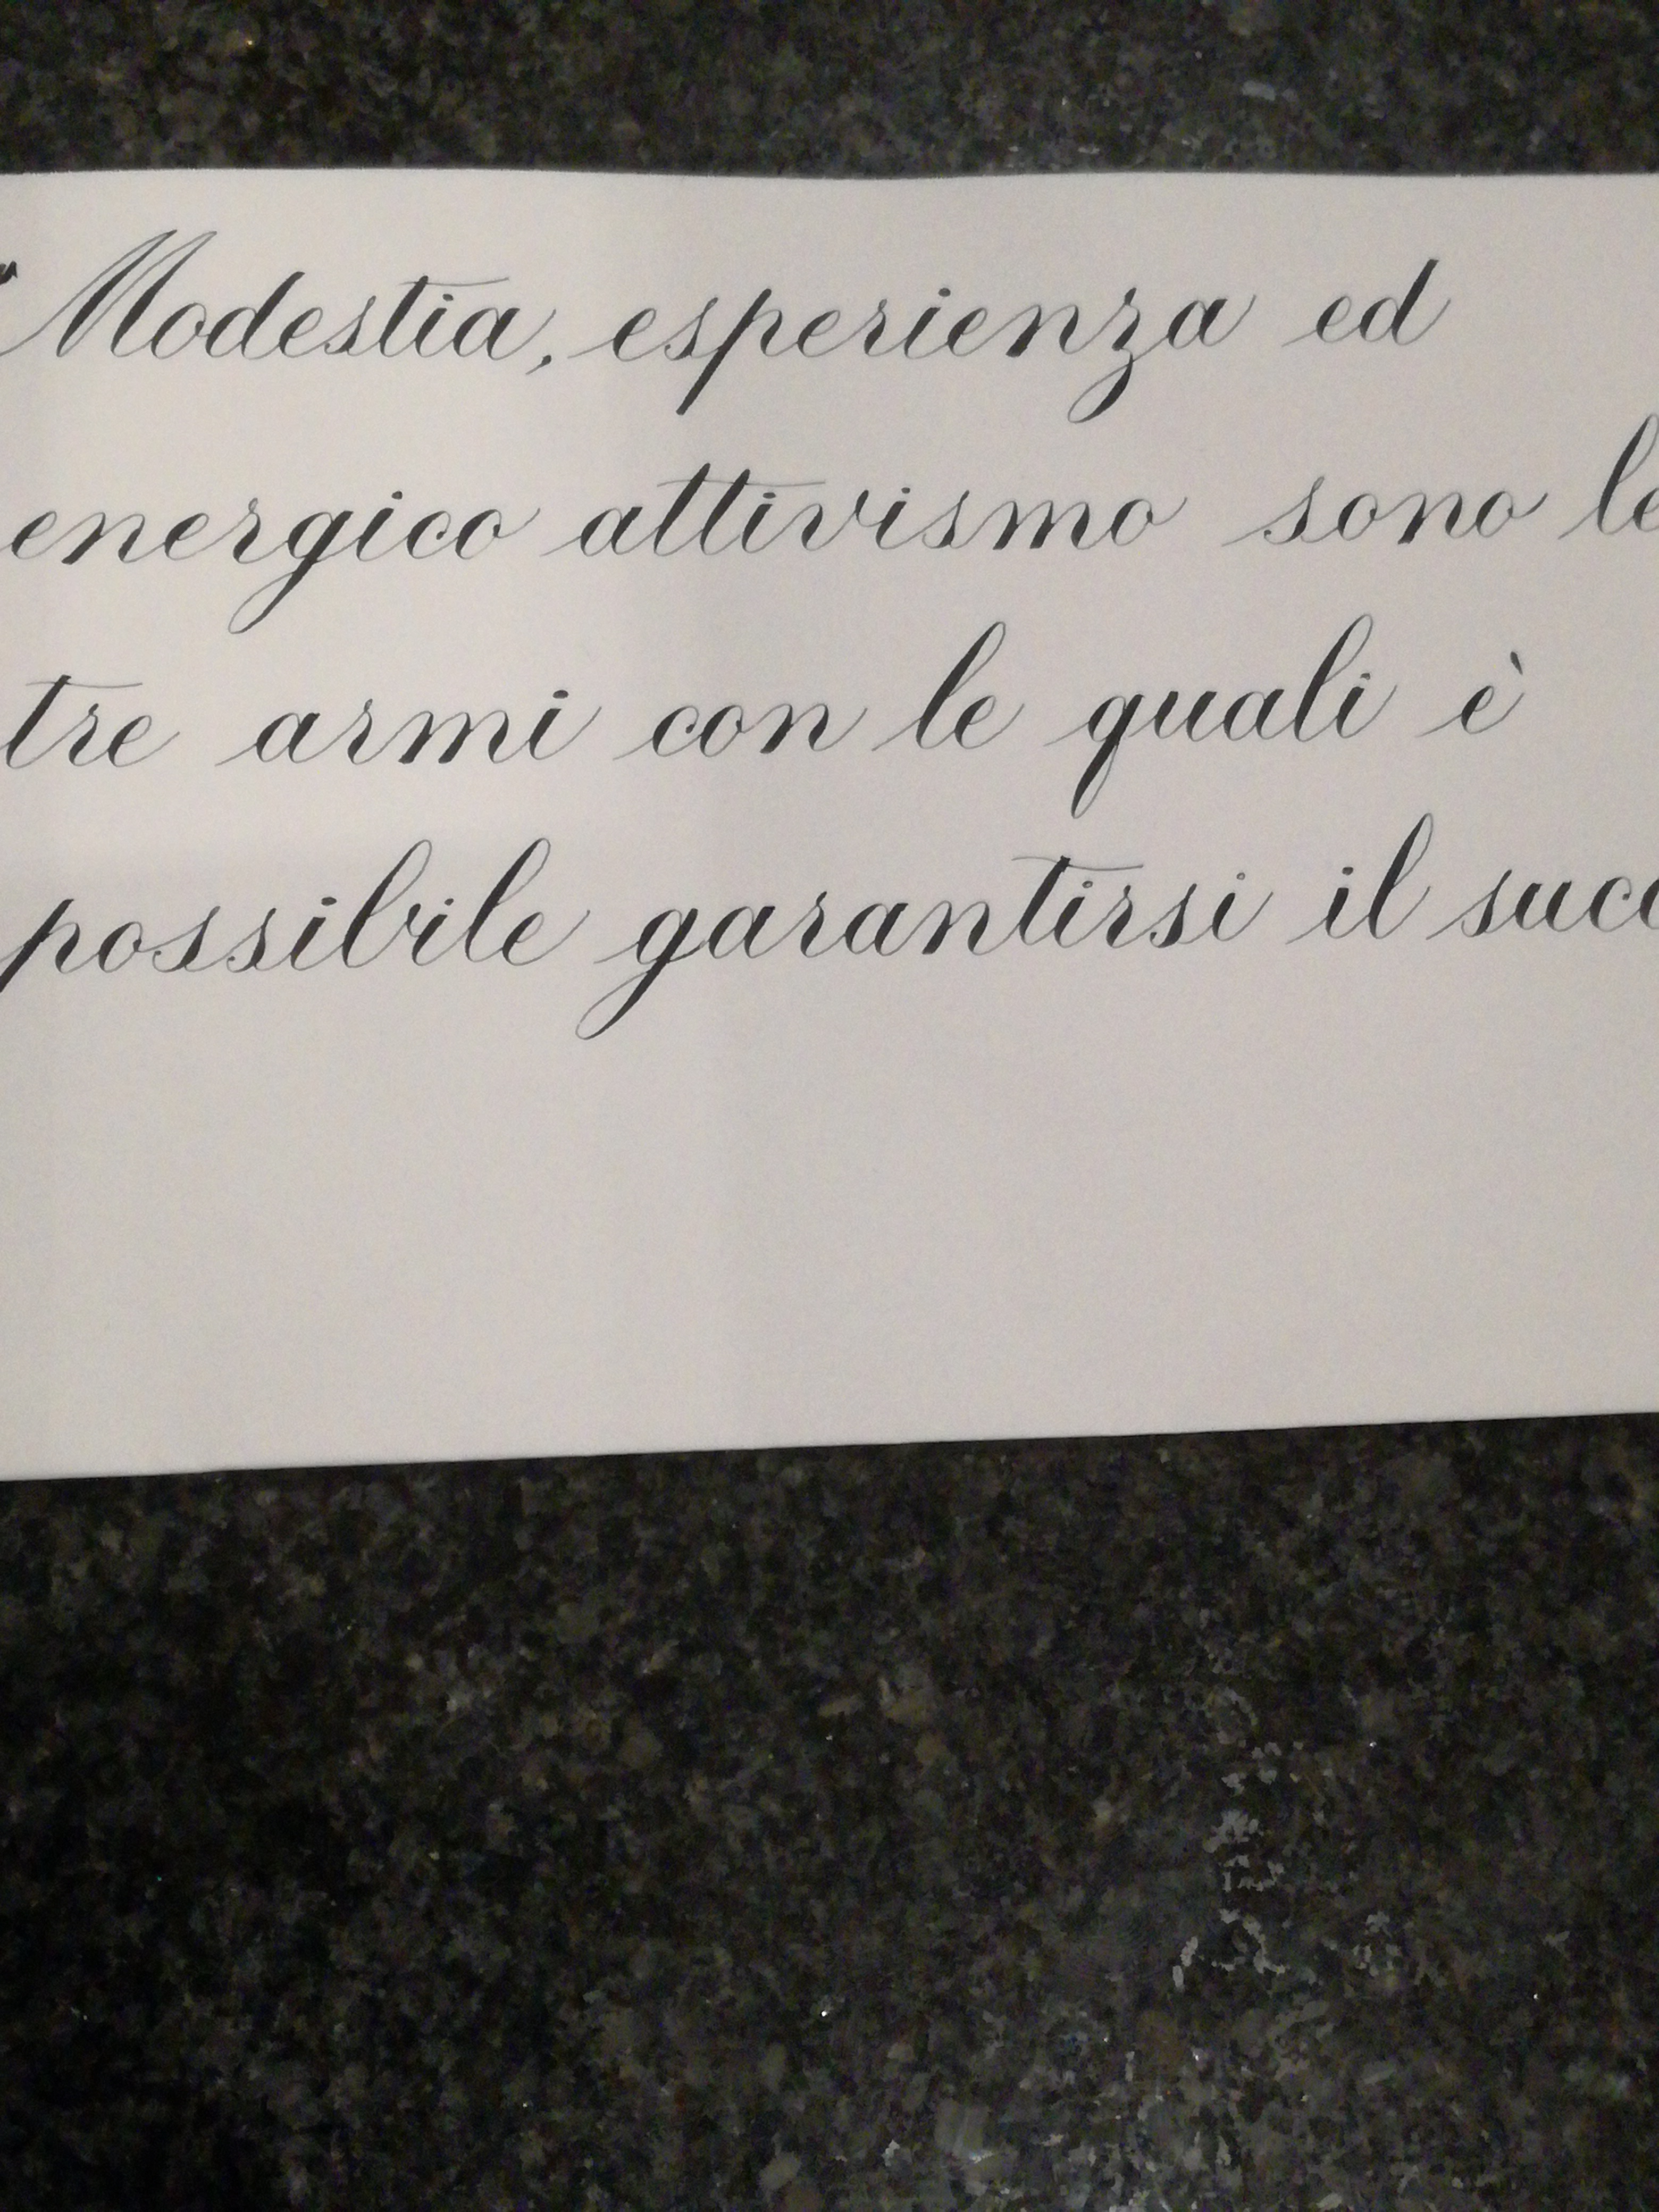 "Modestia, esperienza ed
energico attivismo sono le
tre armi con le quali è
possibile garantirsi il succ